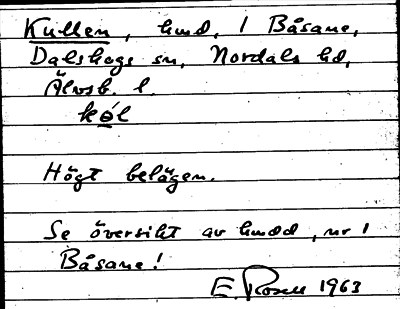 Kullen, hmd, 1 Båsane,
Dalskogs sn, Nordals hd,
Älvsb. l.
køl
Högt belägen.
Se översikt av hmdd, nr 1
Båsane!
E. Rosell 1963